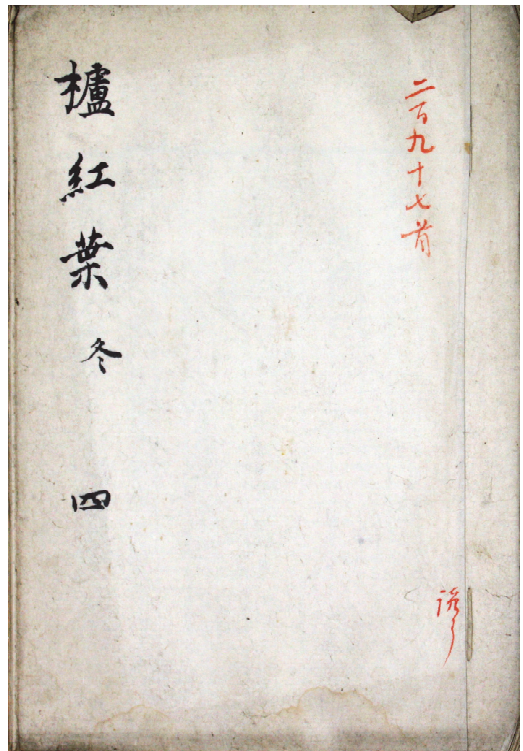 二百九十七首
櫨紅葉 冬 四